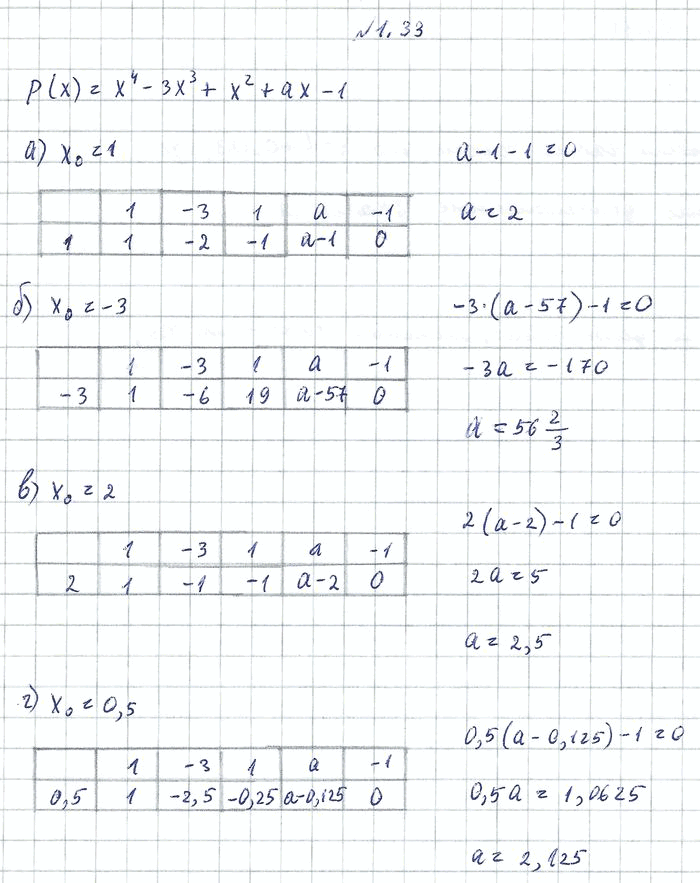 №1.33
P(x) = x⁴ - 3x³ + x² + ax - 1
а) x₀ = 1
a - 1 - 1 = 0
1 -3 1 a -1
a = 2
1 1 -2 -1 a-1 0
б) x₀ = -3
-3·(a - 57) - 1 = 0
1 -3 1 a -1
-3a = -170
-3 1 -6 19 a-57 0
a = 56 2/3
в) x₀ = 2
2(a - 2) - 1 = 0
1 -3 1 a -1
2a = 5
2 1 -1 -1 a-2 0
a = 2,5
г) x₀ = 0,5
0,5(a - 0,125) - 1 = 0
1 -3 1 a -1
0,5a = 1,0625
0,5 1 -2,5 -0,25 a-0,125 0
a = 2,125